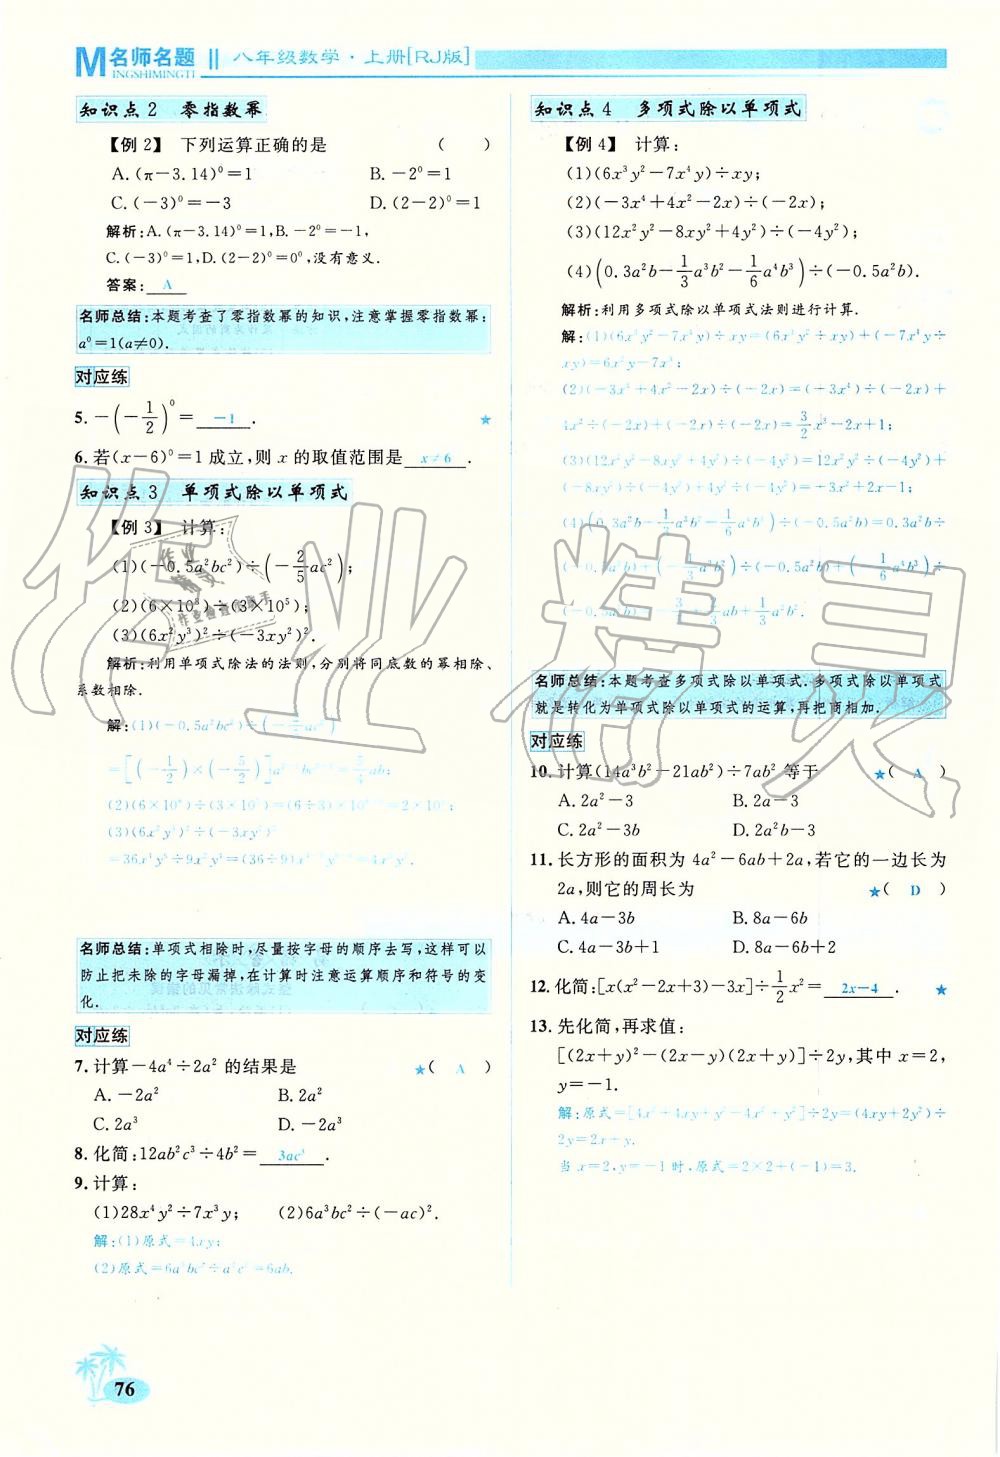 M名师名题 ‖ 八年级数学·上册[RJ版]
INGSHIMINGTI
知识点2 零指数幂
【例2】 下列运算正确的是 ( )
A.(π-3.14)⁰=1 B.-2⁰=1
C.(-3)⁰=-3 D.(2-2)⁰=1
解析:A.(π-3.14)⁰=1,B.-2⁰=-1,
C.(-3)⁰=1,D.(2-2)⁰=0⁰,没有意义.
答案: A
名师总结:本题考查了零指数幂的知识,注意掌握零指数幂:
a⁰=1(a≠0).
对应练
5.-(-1/2)⁰= -1 . ★
6.若(x-6)⁰=1成立,则x的取值范围是 x≠6 .
知识点3 单项式除以单项式
【例3】 计算:
(1)(-0.5a²bc²)÷(-2/5ac²);
(2)(6×10⁸)÷(3×10⁵);
(3)(6x²y³)²÷(-3xy²)².
解析:利用单项式除法的法则,分别将同底数的幂相除、
系数相除.
解:(1)(-0.5a²bc²)÷(-2/5ac²)
=[(-1/2)×(-5/2)]a²⁻¹bc²⁻²=5/4ab;
(2)(6×10⁸)÷(3×10⁵)=(6÷3)×10⁸⁻⁵=2×10³;
(3)(6x²y³)²÷(-3xy²)²
=36x⁴y⁶÷9x²y⁴=(36÷9)x⁴⁻²y⁶⁻⁴=4x²y².
名师总结:单项式相除时,尽量按字母的顺序去写,这样可以
防止把未除的字母漏掉,在计算时注意运算顺序和符号的变
化.
对应练
7.计算-4a⁴÷2a²的结果是 ★( A )
A.-2a² B.2a²
C.2a³ D.-2a³
8.化简:12ab²c³÷4b²= 3ac³ .
9.计算:
(1)28x⁴y²÷7x³y; (2)6a³bc²÷(-ac)².
解:(1)原式=4xy;
(2)原式=6a³bc²÷a²c²=6ab.
76
知识点4 多项式除以单项式
【例4】 计算:
(1)(6x³y²-7x⁴y)÷xy;
(2)(-3x⁴+4x²-2x)÷(-2x);
(3)(12x²y²-8xy²+4y²)÷(-4y²);
(4)(0.3a²b-1/3a³b²-1/6a⁴b³)÷(-0.5a²b).
解析:利用多项式除以单项式法则进行计算.
解:(1)(6x³y²-7x⁴y)÷xy=(6x³y²÷xy)+(-7x⁴y÷
xy)=6x²y-7x³;
(2)(-3x⁴+4x²-2x)÷(-2x)=(-3x⁴)÷(-2x)+
4x²÷(-2x)+(-2x)÷(-2x)=3/2x³-2x+1;
(3)(12x²y²-8xy²+4y²)÷(-4y²)=12x²y²÷(-4y²)+
(-8xy²)÷(-4y²)+4y²÷(-4y²)=-3x²+2x-1;
(4)(0.3a²b-1/3a³b²-1/6a⁴b³)÷(-0.5a²b)=0.3a²b÷
(-0.5a²b)+(-1/3a³b²)÷(-0.5a²b)+(-1/6a⁴b³)÷
(-0.5a²b)=-3/5+2/3ab+1/3a²b².
名师总结:本题考查多项式除以单项式.多项式除以单项式
就是转化为单项式除以单项式的运算,再把商相加.
对应练
10.计算(14a³b²-21ab²)÷7ab²等于 ★( A )
A.2a²-3 B.2a-3
C.2a²-3b D.2a²b-3
11.长方形的面积为4a²-6ab+2a,若它的一边长为
2a,则它的周长为 ★( D )
A.4a-3b B.8a-6b
C.4a-3b+1 D.8a-6b+2
12.化简:[x(x²-2x+3)-3x]÷1/2x²= 2x-4 . ★
13.先化简,再求值:
[(2x+y)²-(2x-y)(2x+y)]÷2y,其中x=2,
y=-1.
解:原式=[4x²+4xy+y²-4x²+y²]÷2y=(4xy+2y²)÷
2y=2x+y.
当x=2,y=-1时,原式=2×2+(-1)=3.
作业精灵